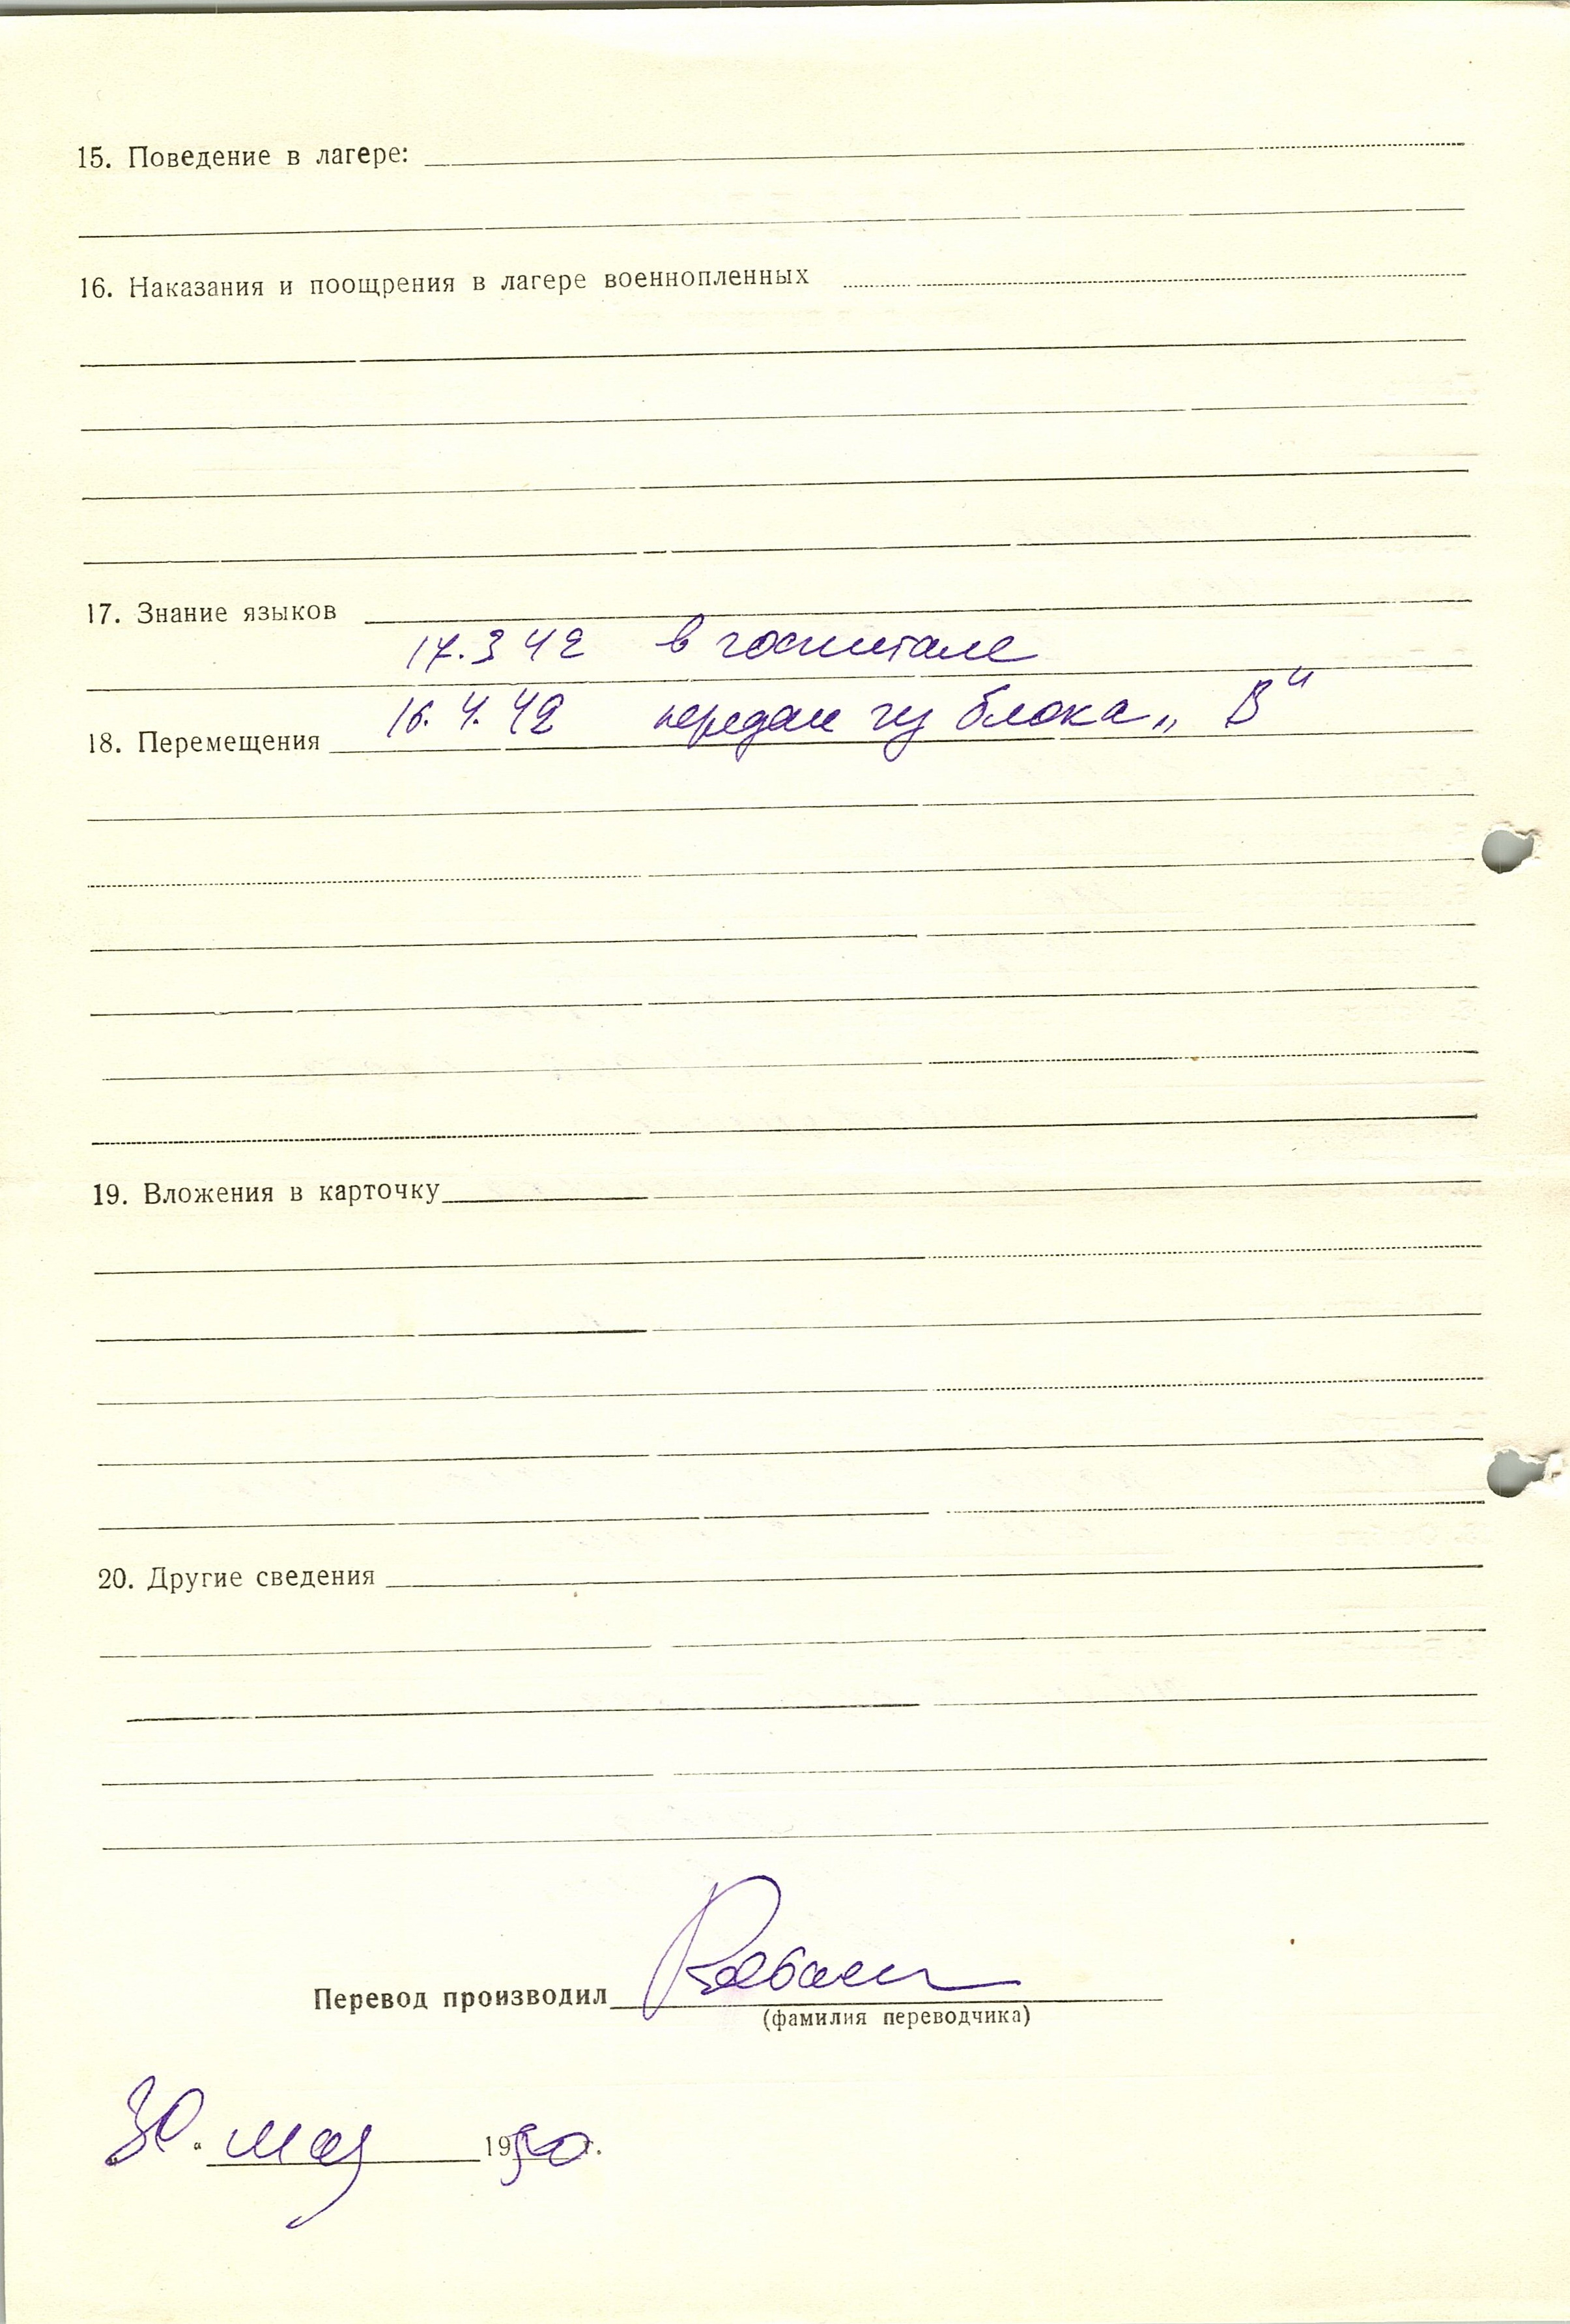 15. Поведение в лагере:
16. Наказания и поощрения в лагере военнопленных
17. Знание языков
17. 3 42 в госпитале
16. 4. 42 передан из блока „В“
18. Перемещения
19. Вложения в карточку
20. Другие сведения
Перевод производил
(фамилия переводчика)
30. мая 1950 г.